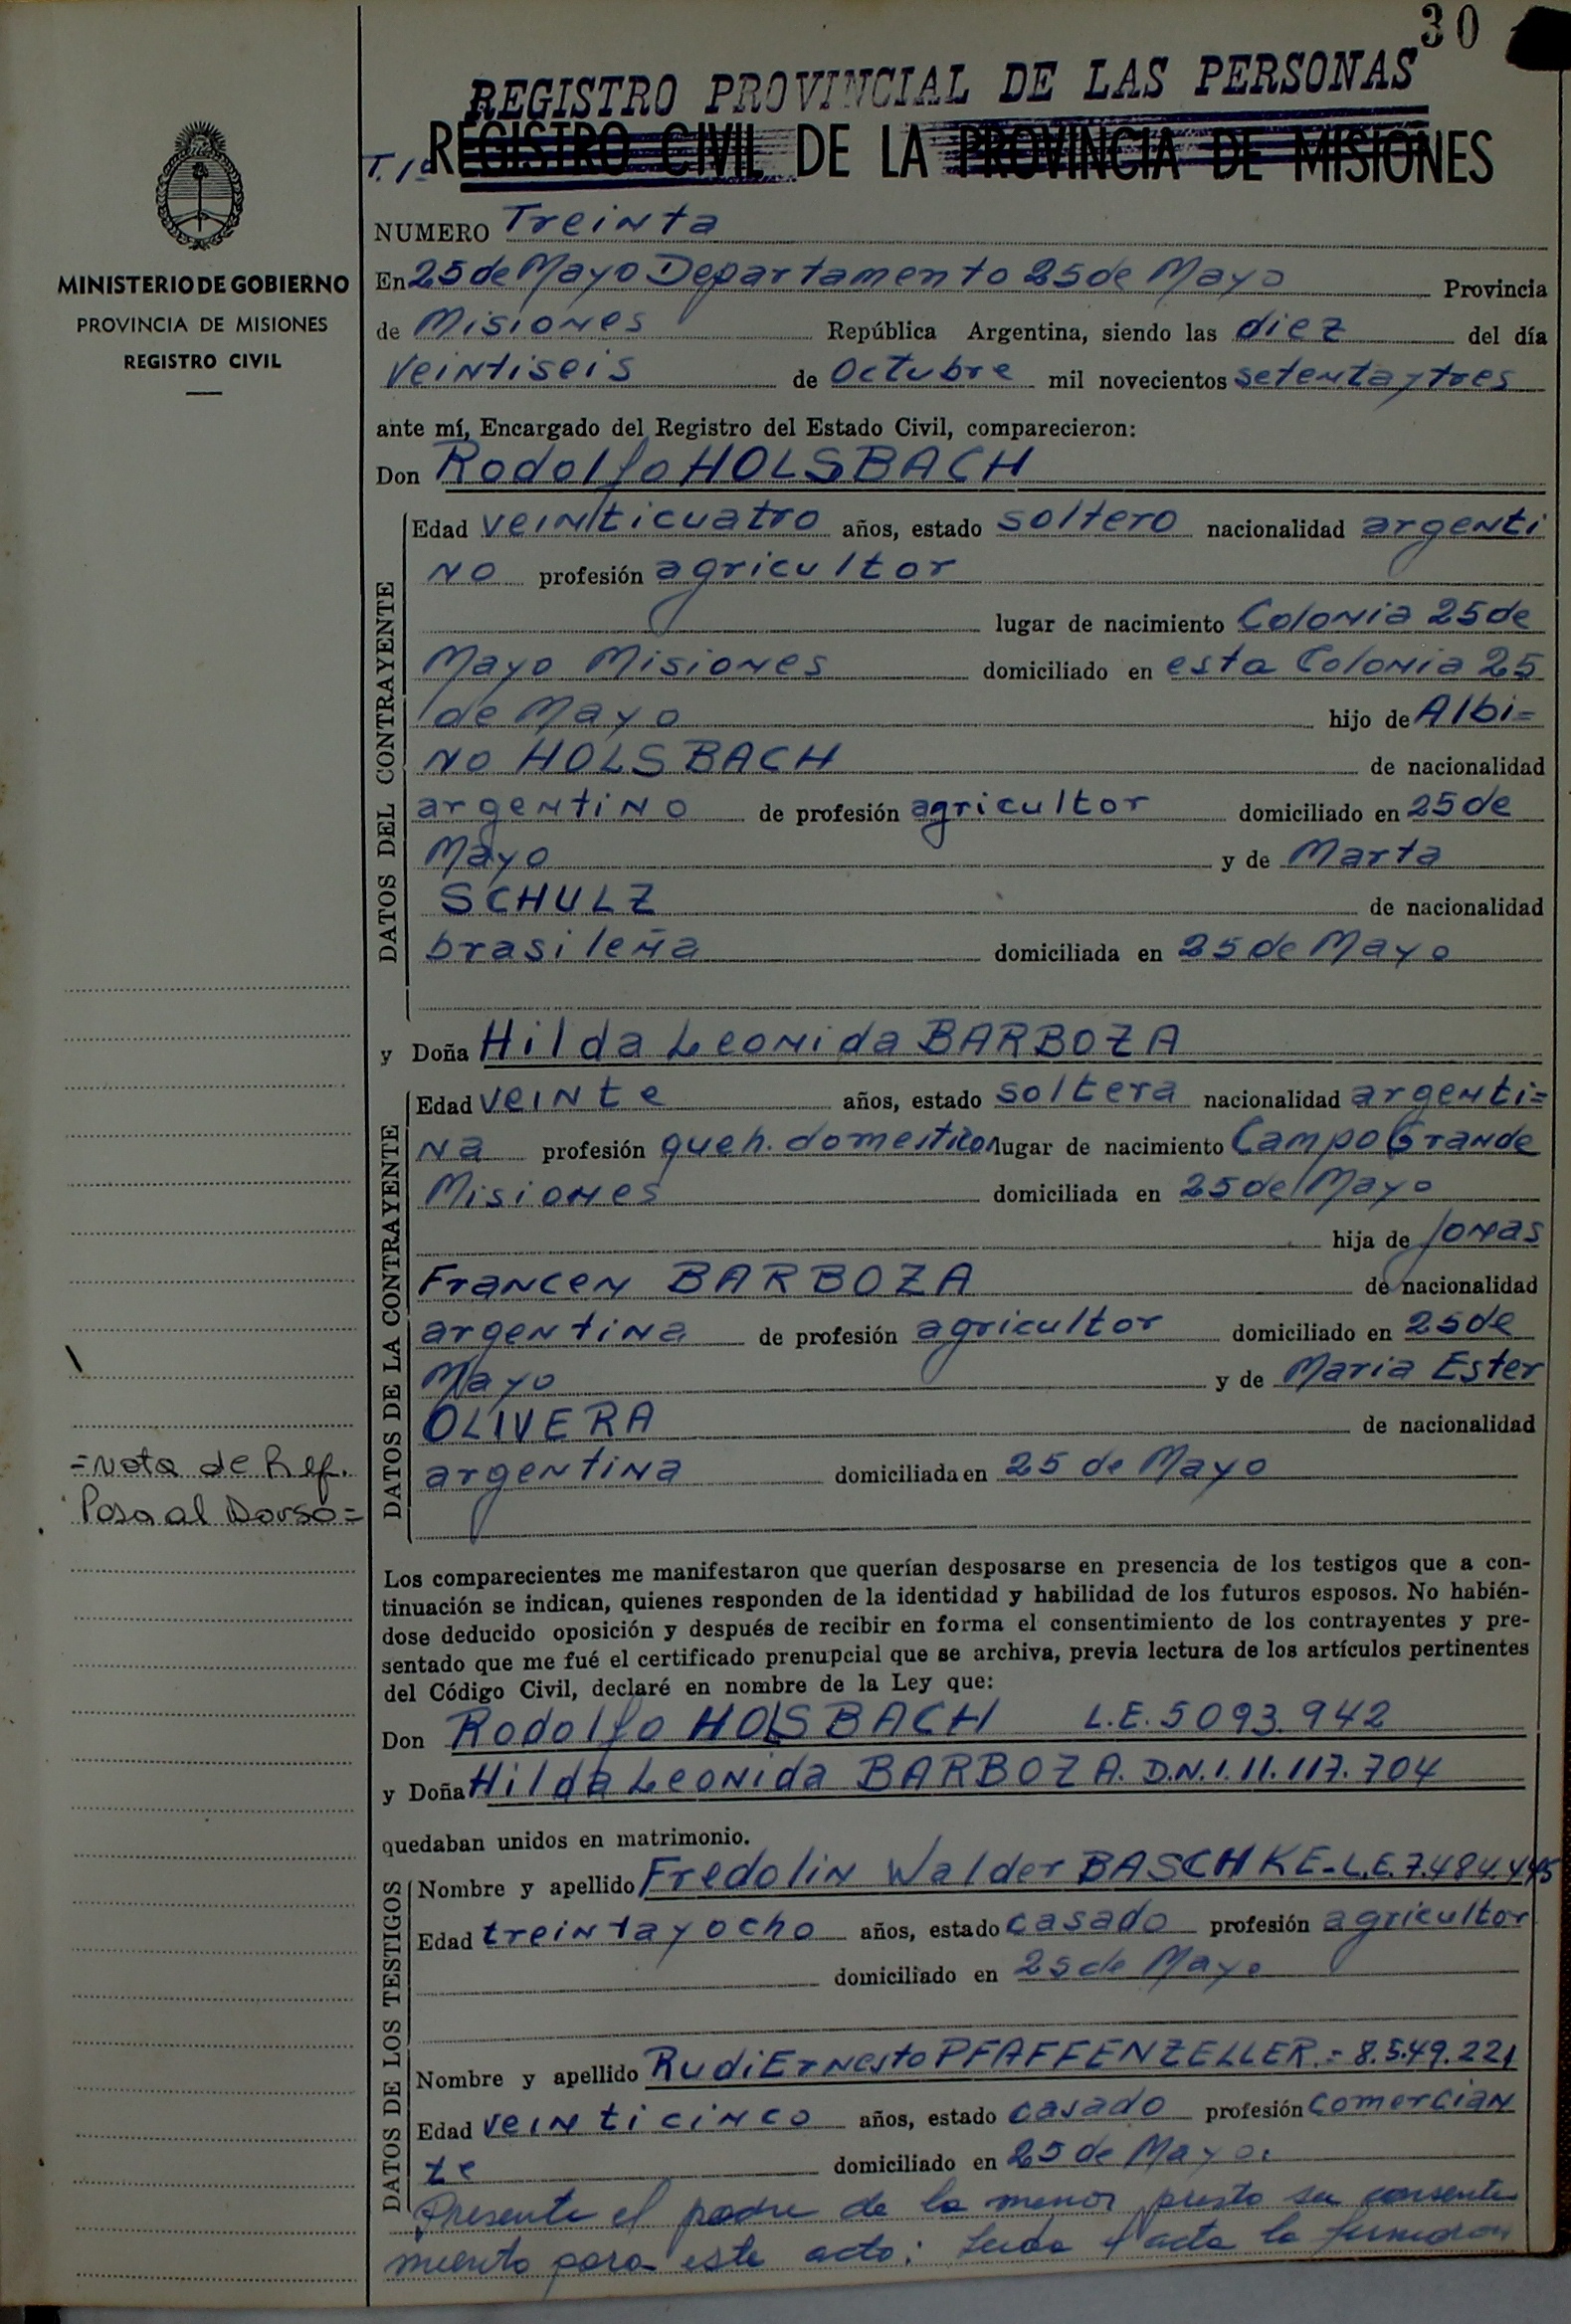 30
REGISTRO PROVINCIAL DE LAS PERSONAS
T. 1º REGISTRO CIVIL DE LA PROVINCIA DE MISIONES
MINISTERIO DE GOBIERNO
PROVINCIA DE MISIONES
REGISTRO CIVIL
NUMERO Treinta
En 25 de Mayo Departamento 25 de Mayo Provincia
de Misiones República Argentina, siendo las diez del día
veintiseis de Octubre mil novecientos setenta y tres
ante mí, Encargado del Registro del Estado Civil, comparecieron:
Don Rodolfo HOLSBACH
DATOS DEL CONTRAYENTE
Edad veinticuatro años, estado soltero nacionalidad argenti
no profesión agricultor
lugar de nacimiento Colonia 25 de
Mayo Misiones domiciliado en esta Colonia 25
de Mayo hijo de Albi=
no HOLSBACH de nacionalidad
argentino de profesión agricultor domiciliado en 25 de
Mayo y de Marta
SCHULZ de nacionalidad
brasileña domiciliada en 25 de Mayo
y Doña Hilda Leonida BARBOZA
DATOS DE LA CONTRAYENTE
Edad veinte años, estado soltera nacionalidad argenti=
na profesión queh. domestico lugar de nacimiento Campo Grande
Misiones domiciliada en 25 de Mayo
hija de Jonas
Francen BARBOZA de nacionalidad
argentina de profesión agricultor domiciliado en 25 de
Mayo y de Maria Ester
OLIVERA de nacionalidad
argentina domiciliada en 25 de Mayo
=Nota de Ref.
Pasa al Dorso=
Los comparecientes me manifestaron que querían desposarse en presencia de los testigos que a con-
tinuación se indican, quienes responden de la identidad y habilidad de los futuros esposos. No habién-
dose deducido oposición y después de recibir en forma el consentimiento de los contrayentes y pre-
sentado que me fué el certificado prenupcial que se archiva, previa lectura de los artículos pertinentes
del Código Civil, declaré en nombre de la Ley que:
Don Rodolfo HOLSBACH L.E. 5093.942
y Doña Hilda Leonida BARBOZA. D.N.I. 11.117.704
quedaban unidos en matrimonio.
DATOS DE LOS TESTIGOS
Nombre y apellido Fredolin Walder BASCHKE-L.E. 7.484.445
Edad treinta y ocho años, estado casado profesión agricultor
domiciliado en 25 de Mayo
Nombre y apellido Rudi Ernesto PFAFFENZELLER.= 8.549.221
Edad veinticinco años, estado casado profesión comercian
te domiciliado en 25 de Mayo.
Presente el padre de la menor presto su consenti
miento para este acto: Leida el acta la firmaron